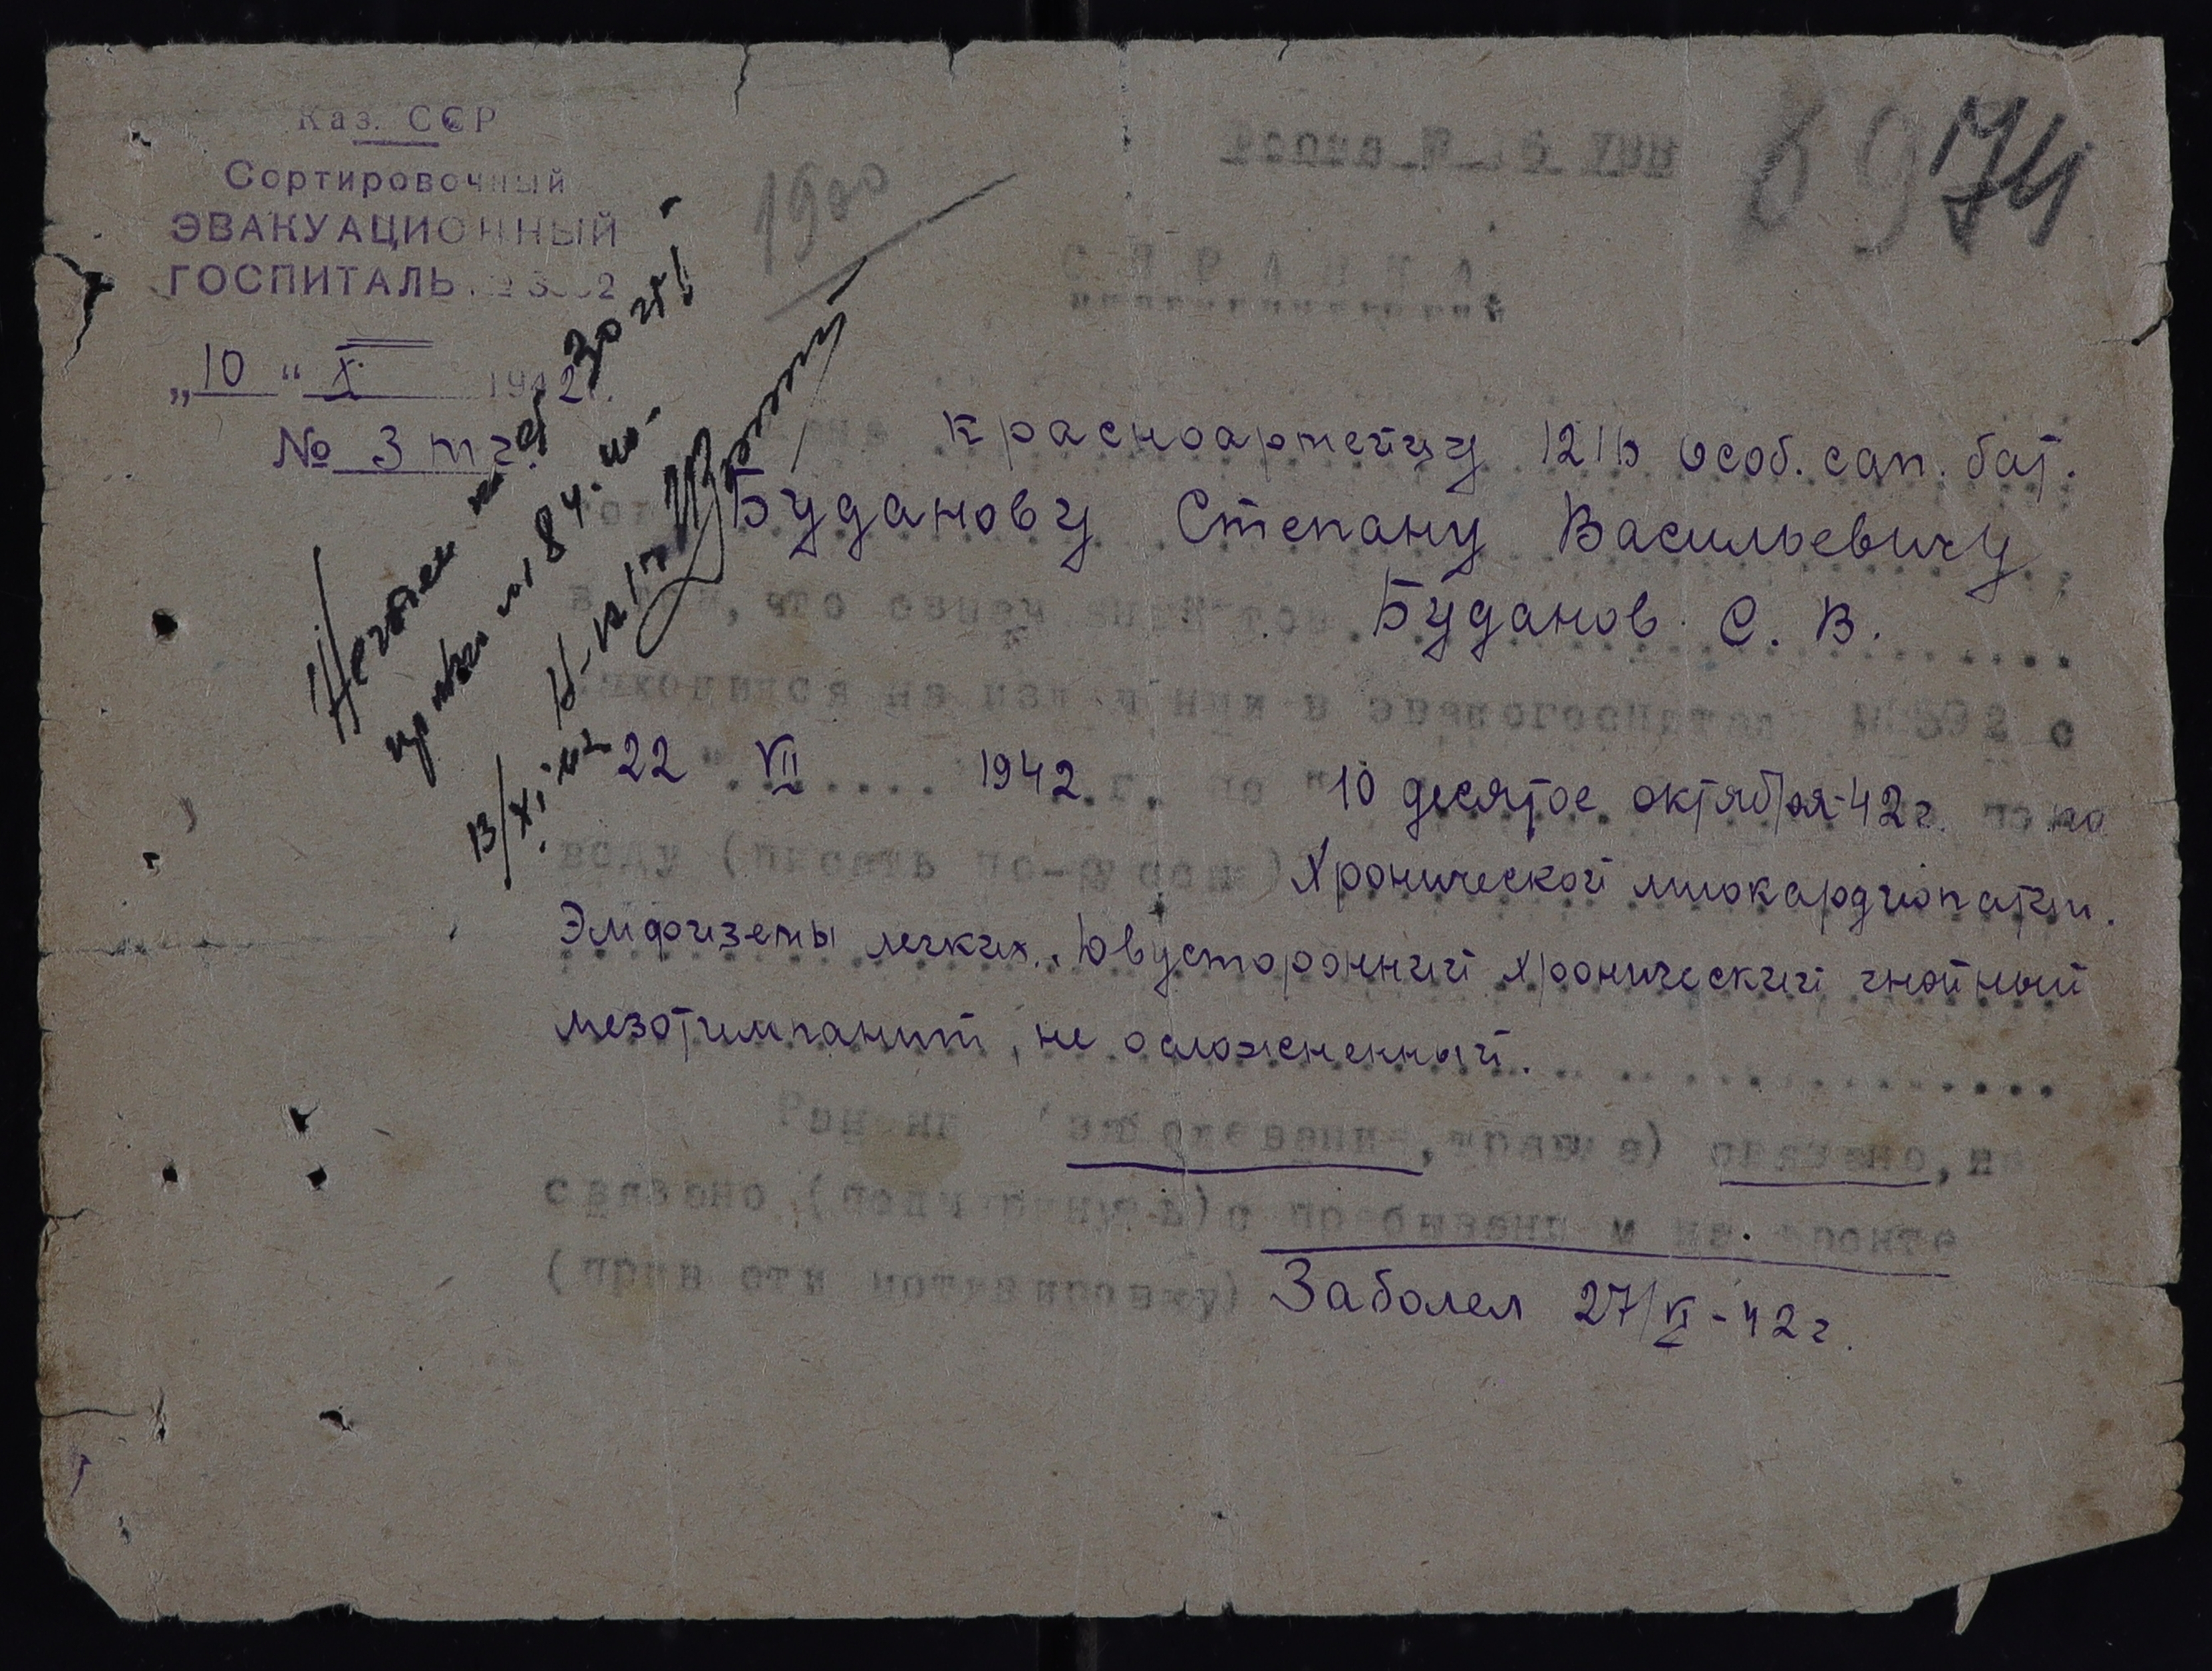 Каз. ССР
Сортировочный
ЭВАКУАЦИОННЫЙ
ГОСПИТАЛЬ
„10“ X 1942г.
№ 3
1900
69 74
Форма № 16 УВП
СПРАВКА
красноармейцу 1216 особ. сап. бат.
Буданову Степану Васильевичу
в том, что
Буданов С. В.
находился на излечении в эвакогоспитале с
22 VII 1942 г. по 10 десятое октября 42г. по по
воду (писать по-русски) Хронической миокардиопатии.
Эмфиземы легких. Двусторонний хронический гнойный
мезотимпанит, не осложненный.
Ранение (заболевание, травма) связано, не
связано (подчеркнуть) с пребыванием на фронте
(привести мотивировку) Заболел 27/VI-42г.
Негоден
30 ст!
13/XI 42